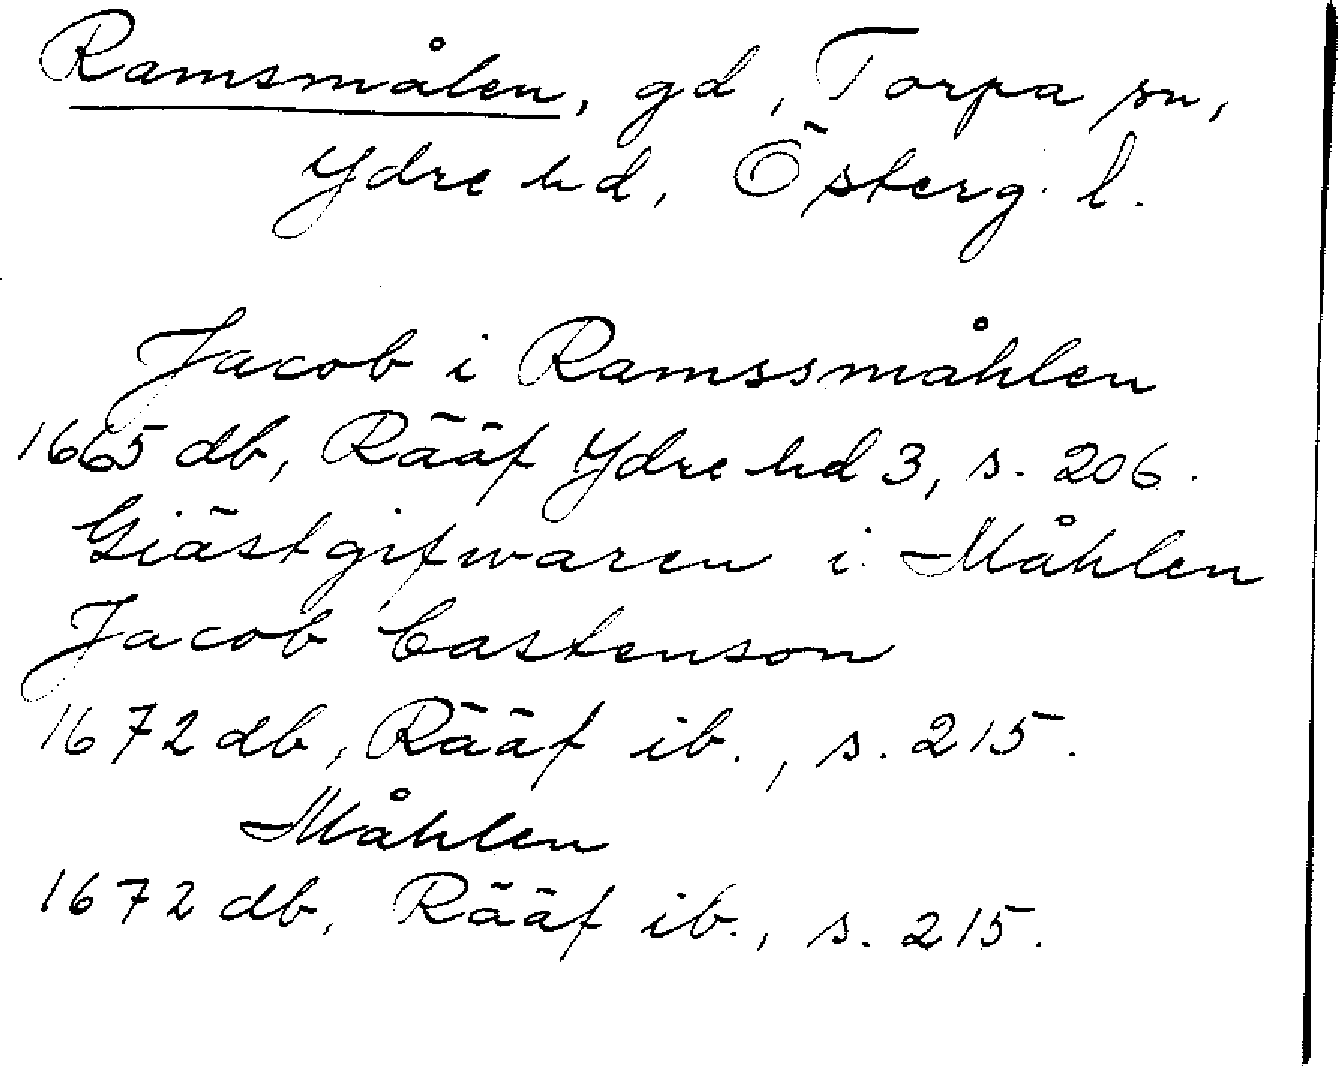 Ramsmålen, gd, Torpa sn,
Ydre hd, Österg. l.
Jacob i Ramssmåhlen
1665 db, Rääf Ydre hd 3, s. 206.
Giästgifwaren i Måhlen
Jacob Castenson
1672 db, Rääf ib., s. 215.
Måhlen
1672 db, Rääf ib., s. 215.